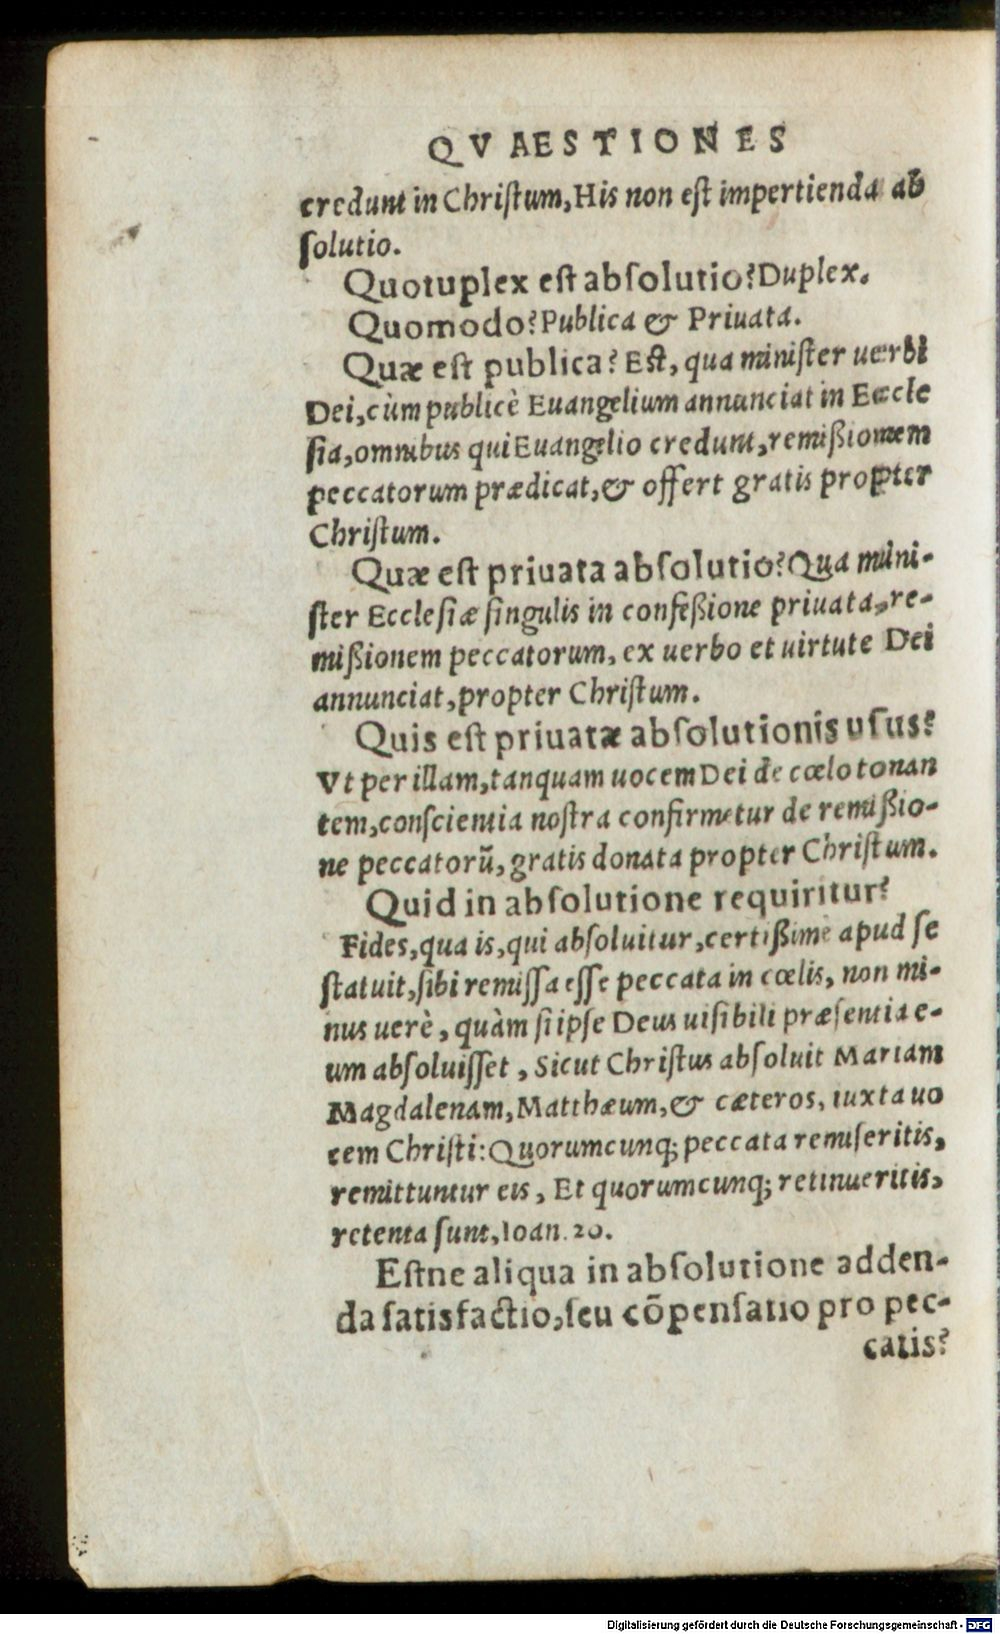 QVAESTIONES
credunt in Chriſtum, His non eſt impertienda ab
ſolutio.
Quotuplex eſt abſolutio? Duplex.
Quomodo? Publica & Priuata.
Quæ eſt publica? Eſt, qua miniſter uerbi
Dei, cùm publicè Euangelium annunciat in Eccle
ſia, omnibus qui Euangelio credunt, remißionem
peccatorum prædicat, & offert gratis propter
Chriſtum.
Quæ eſt priuata abſolutio? Qua mini-
ſter Eccleſiæ ſingulis in confeßione priuata, re-
mißionem peccatorum, ex uerbo et uirtute Dei
annunciat, propter Chriſtum.
Quis eſt priuatæ abſolutionis uſus?
Vt per illam, tanquam uocem Dei de cœlo tonan
tem, conſcientia noſtra confirmetur de remißio-
ne peccatorũ, gratis donata propter Chriſtum.
Quid in abſolutione requiritur?
Fides, qua is, qui abſoluitur, certißime apud ſe
ſtatuit, ſibi remiſſa eſſe peccata in cœlis, non mi-
nus uerè, quàm ſi ipſe Deus uiſibili præſentia e-
um abſoluiſſet, Sicut Chriſtus abſoluit Mariam
Magdalenam, Matthæum, & cæteros, iuxta uo
cem Chriſti: Quorumcunq; peccata remiſeritis,
remittuntur eis, Et quorumcunq; retinueritis,
retenta ſunt, Ioan. 20.
Eſtne aliqua in abſolutione adden-
da ſatisfactio, ſeu cõpenſatio pro pec-
catis?
Digitalisierung gefördert durch die Deutsche Forschungsgemeinschaft - DFG